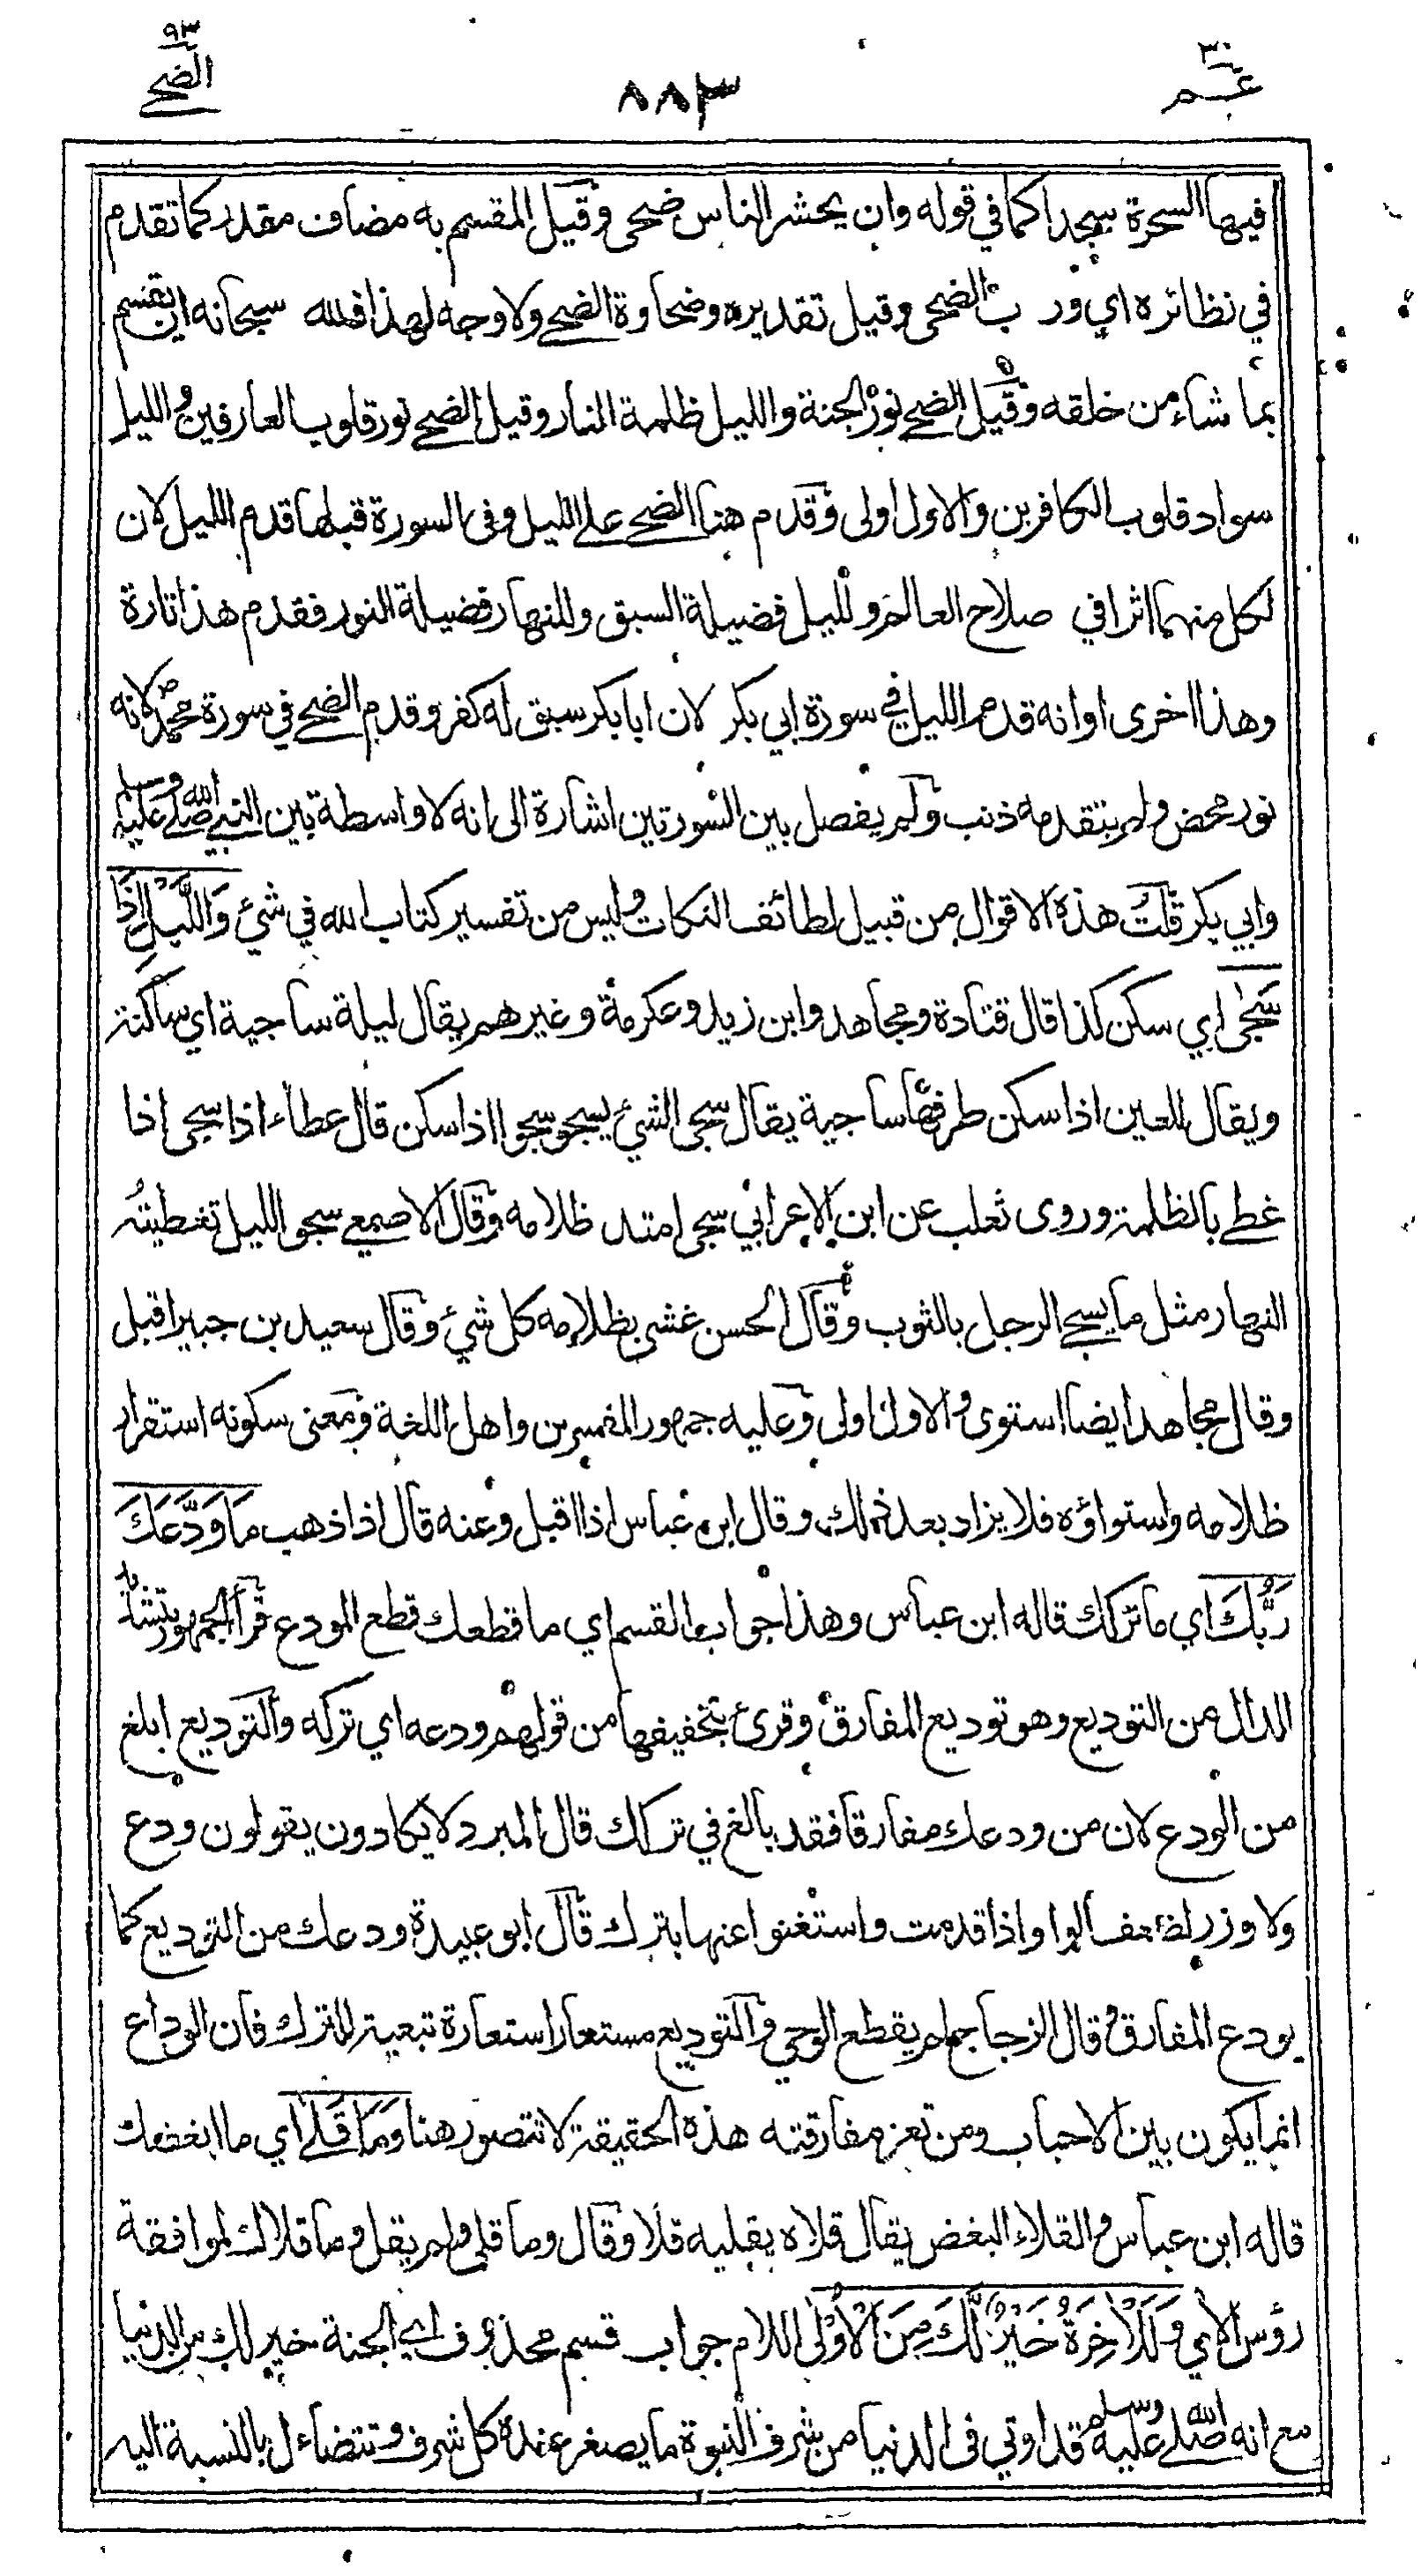 ٣٠
عم
٨٨٣
٩٣
الضحى
فيها السحرة سجدا كما في قوله وان يحشر الناس ضحى وقيل المقسم به مضاف مقدر كما تقدم
في نظائره اي ورب الضحى وقيل تقديره وضحاوة الضحى ولا وجه لهذا فلله سبحانه ان يقسم
بما شاء من خلقه وقيل الضحى نور الجنة والليل ظلمة النار وقيل الضحى نور قلوب العارفين والليل
سواد قلوب الكافرين والاول اولى وقدم هنا الضحى على الليل وفى السورة قبلها قدم الليل لان
لكل منهما اثرا في صلاح العالم ولليل فضيلة السبق وللنهار فضيلة النور فقدم هذا تارة
وهذا اخرى او انه قدم الليل في سورة ابي بكر لان ابا بكر سبق له كفر وقدم الضحى في سورة محمد ص لانه
نور محض ولم يتقدمه ذنب ولم يفصل بين السورتين اشارة الى انه لا واسطة بين النبي صلى الله عليه وسلم
وابي بكر قلت هذه الاقوال من قبيل لطائف النكات وليس من تفسير كتاب الله في شئ وَاللَّيْلِ اِذَا
سَجٰى اي سكن كذا قال قتادة ومجاهد وابن زيد وعكرمة وغيرهم يقال ليلة ساجية اي ساكنة
ويقال للعين اذا سكن طرفها ساجية يقال سجى الشئ يسجو سجوا اذا سكن قال عطاء اذا سجى اذا
غطى بالظلمة وروى ثعلب عن ابن الاعرابي سجى امتد ظلامه وقال الاصمعي سجو الليل تغطيته
النهار مثل ما يسجى الرجل بالثوب وقال الحسن غشى بظلامه كل شئ وقال سعيد بن جبير اقبل
وقال مجاهد ايضا استوى والاول اولى وعليه جمهور المفسرين واهل اللغة ومعنى سكونه استقرار
ظلامه واستواؤه فلا يزاد بعد ذلك وقال ابن عباس اذا اقبل وعنه قال اذا ذهب مَا وَدَّعَكَ
رَبُّكَ اي ما تركك قاله ابن عباس وهذا جواب القسم اي ما قطعك قطع المودع قرأ الجمهور بتشديد
الدال من التوديع وهو توديع المفارق وقرئ بتخفيفها من قولهم ودعه اي تركه والتوديع ابلغ
من الودع لان من ودعك مفارقا فقد بالغ في تركك قال المبرد لا يكادون يقولون ودع
ولا وزر لضعف الواو اذا قدمت واستغنوا عنها بترك قال ابو عبيدة ودعك من التوديع كما
يودع المفارق وقال الزجاج لم يقطع الوحي والتوديع مستعار استعارة تبعية للترك فان الوداع
انما يكون بين الاحباب ومن تعز مفارقته هذه الحقيقة لا تتصور هنا وَمَا قَلٰى اي ما ابغضك
قاله ابن عباس والقلاء البغض يقال قلاه يقليه قلاء وقال وما قلى ولم يقل وما قلاك لموافقة
رؤس الاي وَلَلْاٰخِرَةُ خَيْرٌ لَّكَ مِنَ الْاُوْلٰى اللام جواب قسم محذوف اي الجنة خير لك من الدنيا
مع انه صلى الله عليه وسلم قد اوتي فى الدنيا من شرف النبوة ما يصغر عنده كل شرف وتتضاءل بالنسبة اليه